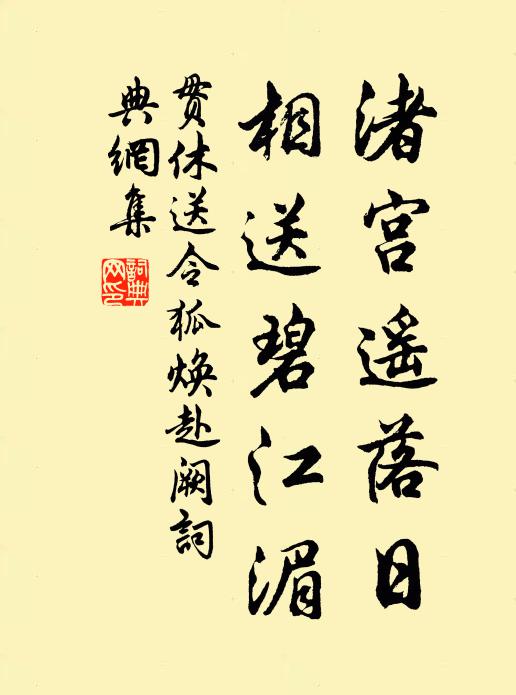 渚宫遥落日
相送碧江湄
贯休送令狐焕赴阙詞
典網集
詞典网印